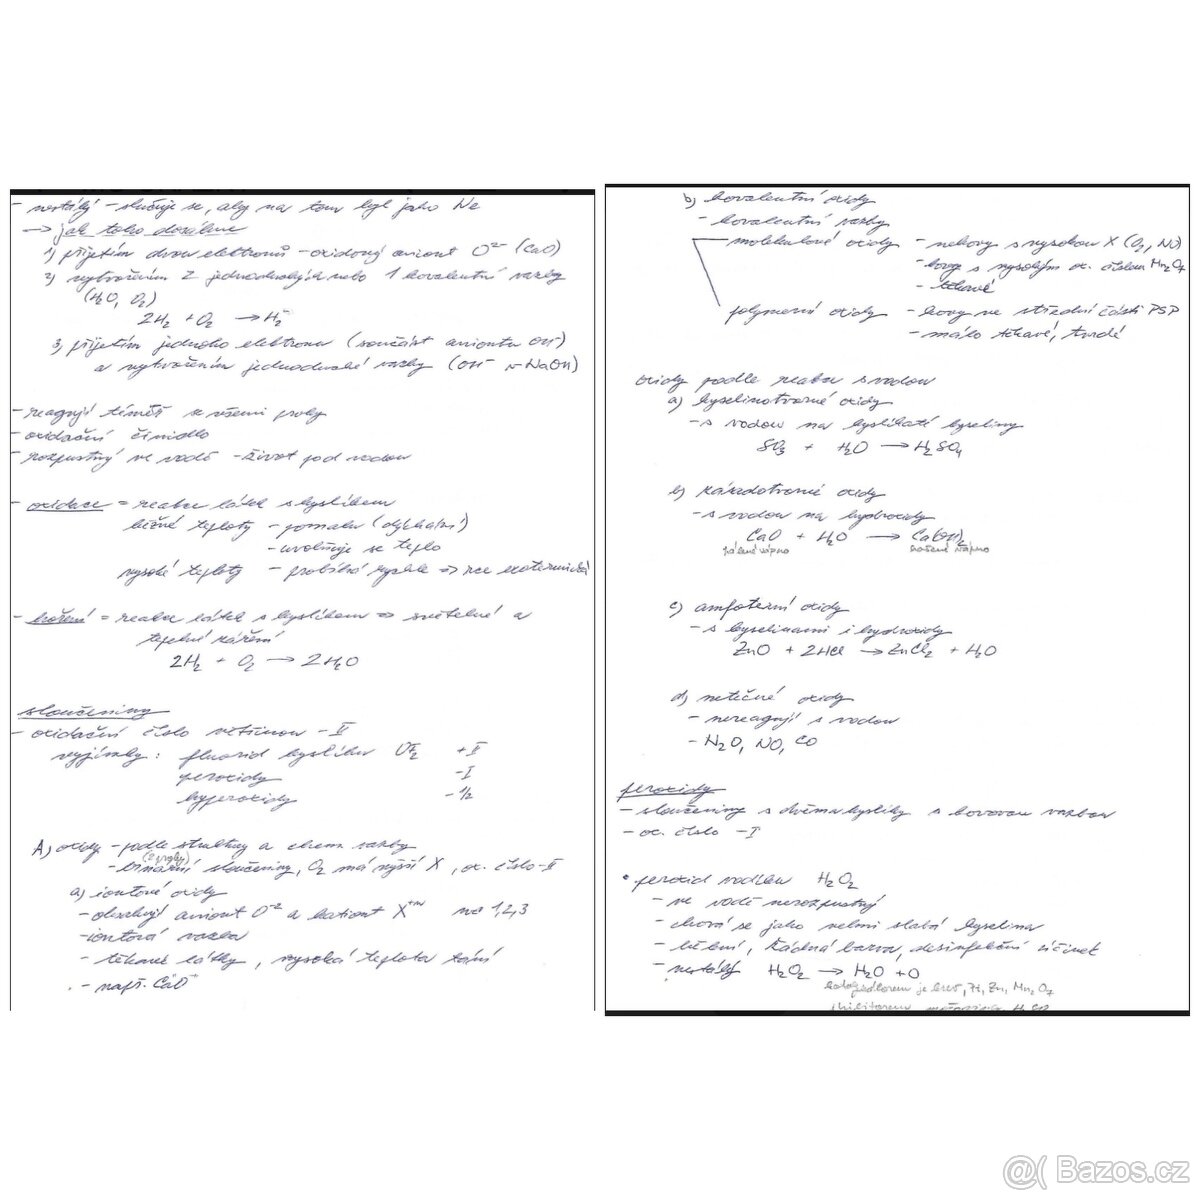 - nestálý - slučuje se, aby na tom byl jako Ne
→ jak toho dosáhne
1) přijetím dvou elektronů - oxidový aniont O²⁻ (CaO)
2) vytvořením 2 jednoduchých nebo 1 kovalentní vazby
(H₂O, O₂)
2H₂ + O₂ →
3) přijetím jednoho elektronu (součást aniontu OH⁻)
a vytvořením jednoduché vazby (OH⁻ v NaOH)
- reagují téměř se všemi prvky
- oxidační činidlo
- rozpustný ve vodě - život pod vodou
- oxidace = reakce látek s kyslíkem
běžné teploty - pomalu (dýchání)
- uvolňuje se teplo
vysoké teploty - probíhá rychle => rce exotermická
- hoření = reakce látek s kyslíkem => světelné a
tepelné záření
2H₂ + O₂ → 2H₂O
sloučeniny
- oxidační číslo většinou -II
vyjímky: fluorid kyslíku OF₂ +II
peroxidy -I
hyperoxidy -1/2
A) oxidy - podle struktury a chem vazby
(2 prvky)
- binární sloučeniny, O₂ má vyšší X, ox. číslo -II
a) iontové oxidy
- obsahují aniont O⁻² a kationt X⁺ⁿ 1,2,3
- iontová vazba
- těkavé látky, vysoká teplota tání
- např. CaO
b) kovalentní oxidy
- kovalentní vazby
molekulové oxidy - nekovy s vysokou X (O₂, NO)
- kovy s vysokým ox. číslem Mn₂O₇
- těkavé
polymerní oxidy - kovy ve střední části PSP
- málo těkavé, tvrdé
oxidy podle reakce s vodou
a) kyselinotvorné oxidy
- s vodou na kyslíkaté kyseliny
SO₃ + H₂O → H₂SO₄
b) zásadotvorné oxidy
- s vodou na hydroxidy
CaO + H₂O → Ca(OH)₂
pálené vápno hašené vápno
c) amfoterní oxidy
- s kyselinami i hydroxidy
ZnO + 2HCl → ZnCl₂ + H₂O
d) netečné oxidy
- nereagují s vodou
- N₂O, NO, CO
peroxidy
- sloučeniny s dvěma kyslíky s kovovou vazbou
- ox. číslo -I
• peroxid vodíku H₂O₂
- ve vodě nerozpustný
- chová se jako velmi slabá kyselina
- bělení, žádná barva, desinfekční účinek
- nestálý H₂O₂ → H₂O + O
je krev, Zn, Mn₂O₇
inhibitorem močovina
@( Bazos.cz